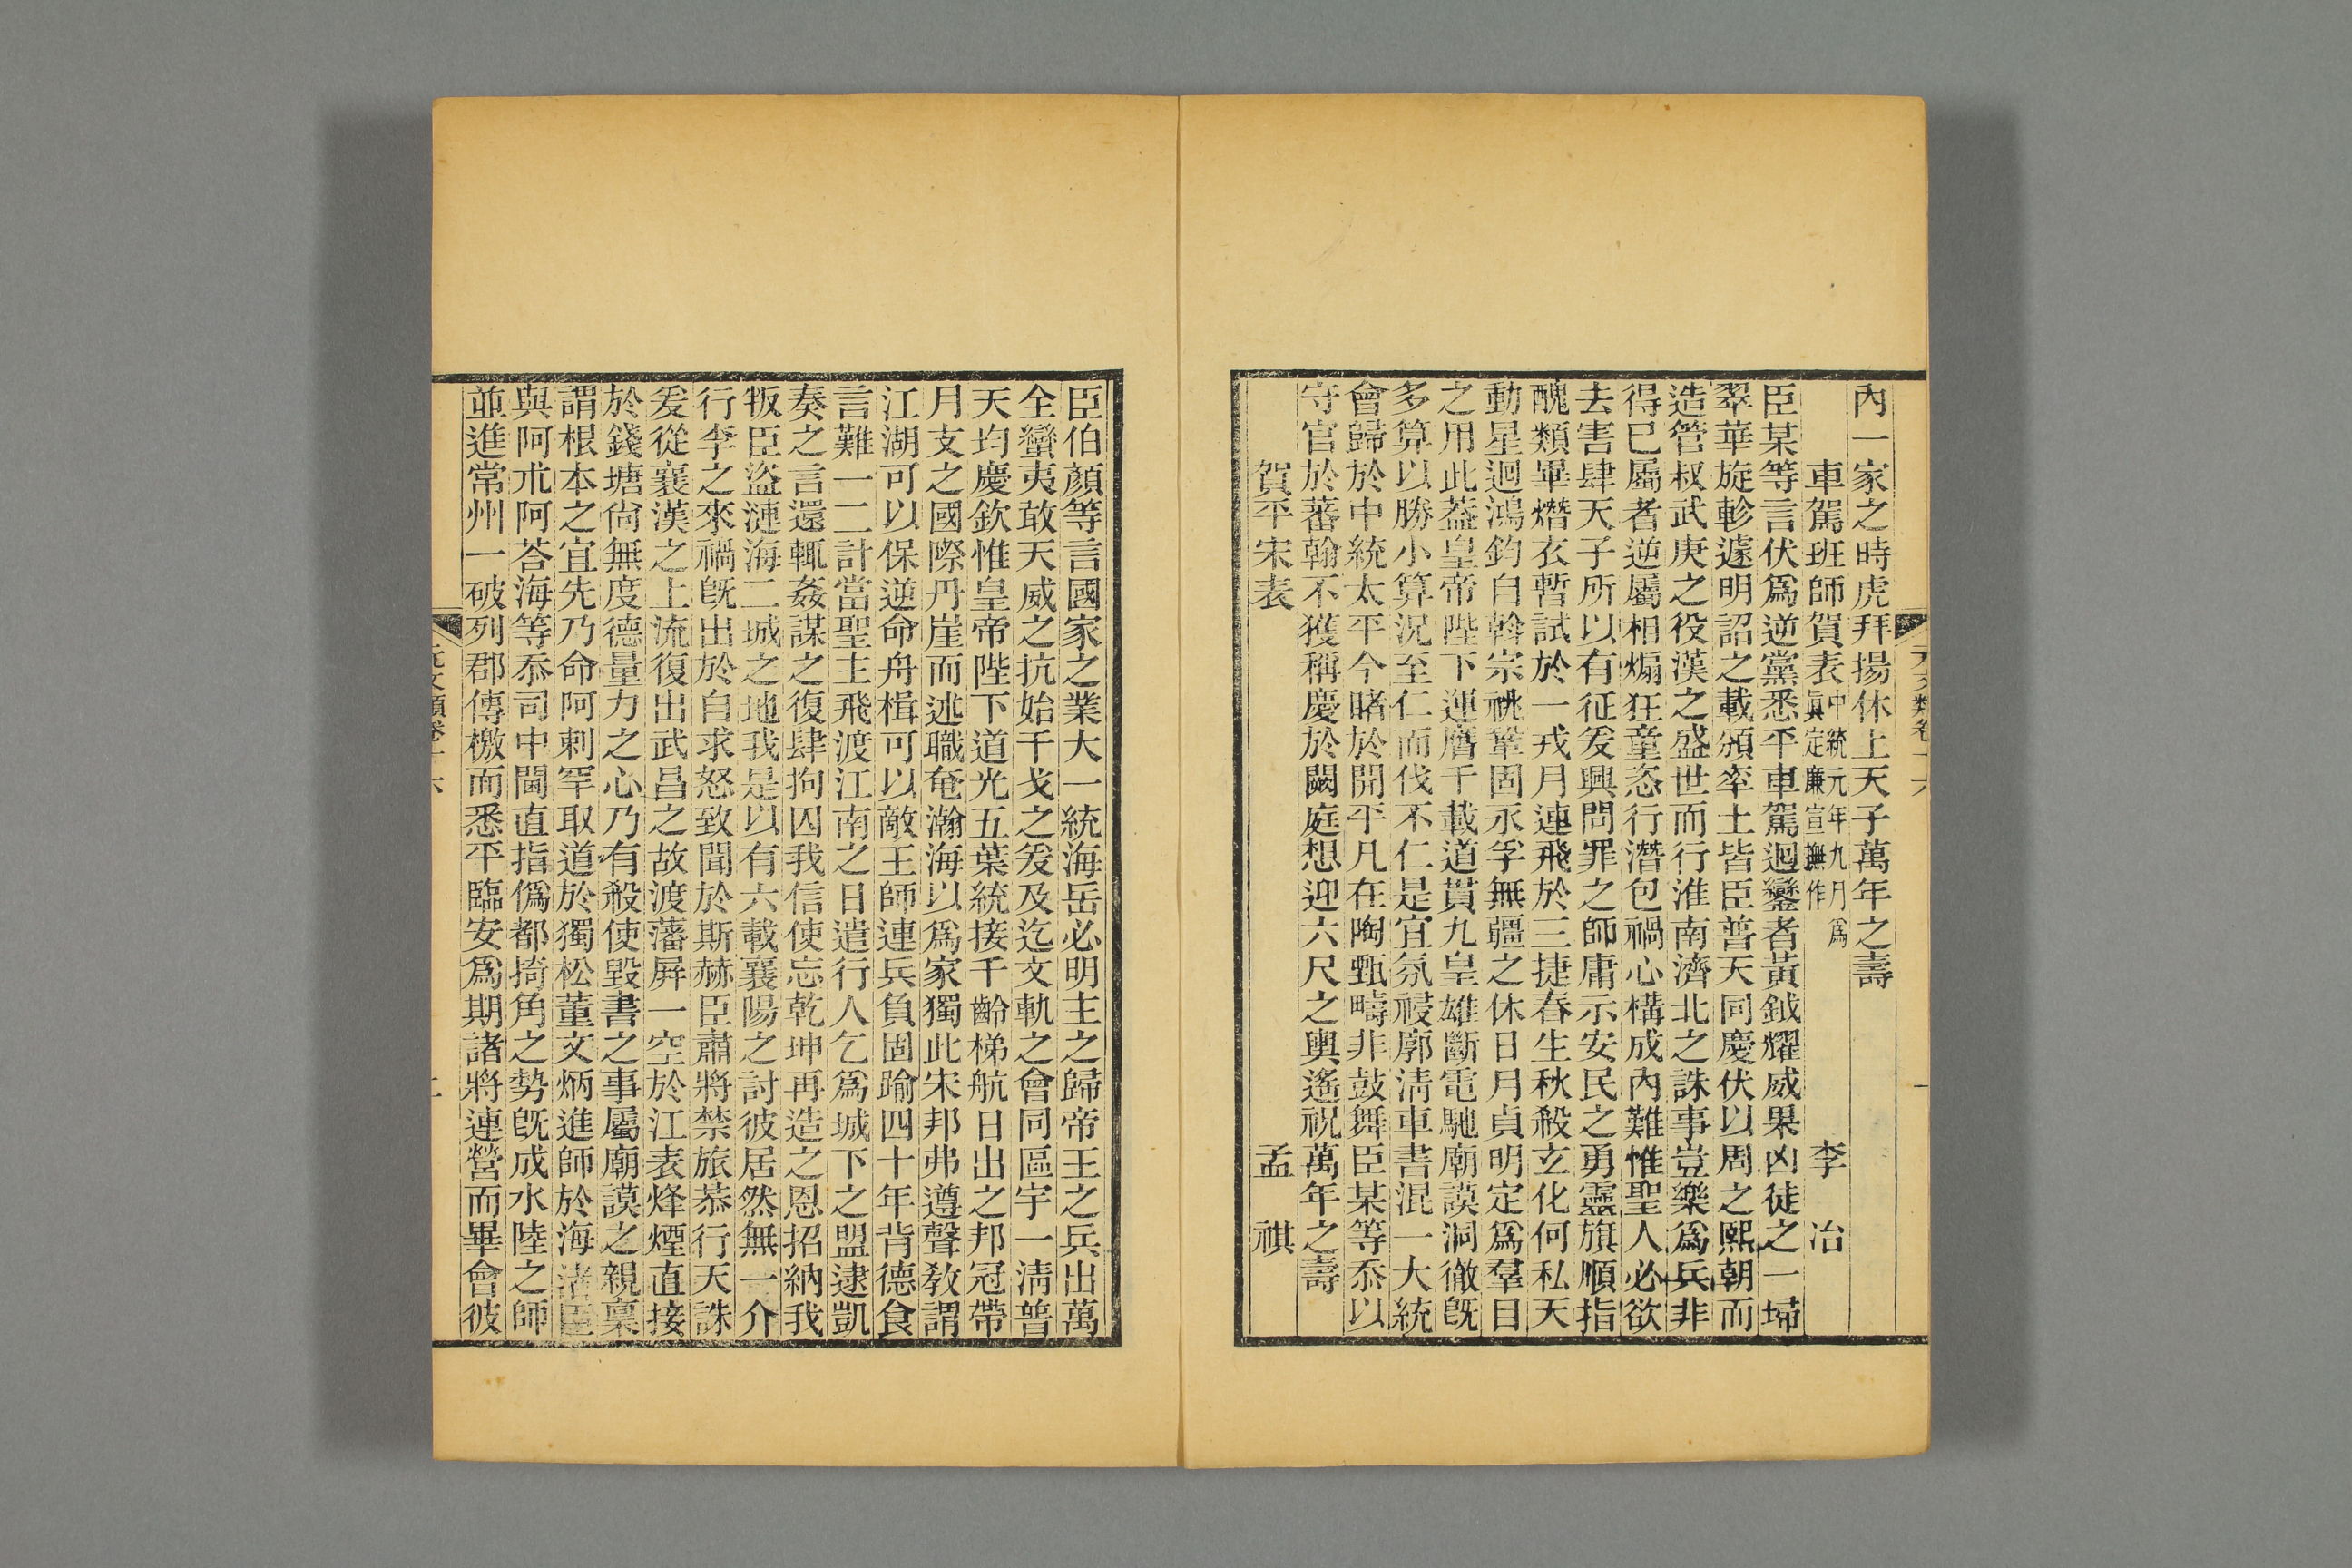 內一家之時虎拜揚休上天子萬年之壽
車駕班師賀表 中統元年九月爲眞定廉宣撫作 李冶
臣某等言伏爲逆黨悉平車駕迴鑾者黃鉞耀威果凶徒之一埽
翠華旋軫遽明詔之載頒率土皆臣普天同慶伏以周之熙朝而
造管叔武庚之役漢之盛世而行淮南濟北之誅事豈樂爲兵非
得已屬者逆屬相煽狂童恣行潛包禍心構成內難惟聖人必欲
去害肆天子所以有征爰興問罪之師庸示安民之勇靈旗順指
醜類畢熸衣暫試於一戎月連飛於三捷春生秋殺玄化何私天
動星迴鴻鈞自斡宗祧鞏固永孚無疆之休日月貞明定爲羣目
之用此葢皇帝陛下運膺千載道貫九皇雄斷電馳廟謨洞徹旣
多算以勝小算況至仁而伐不仁是宜氛祲廓淸車書混一大統
會歸於中統太平今睹於開平凡在陶甄疇非鼓舞臣某等忝以
守官於蕃翰不獲稱慶於闕庭想迎六尺之輿遙祝萬年之壽
賀平宋表 孟祺
臣伯顏等言國家之業大一統海岳必明主之歸帝王之兵出萬
全蠻夷敢天威之抗始干戈之爰及迄文軌之會同區宇一淸普
天均慶欽惟皇帝陛下道光五葉統接千齡梯航日出之邦冠帶
月支之國際丹崖而述職奄瀚海以爲家獨此宋邦弗遵聲敎謂
江湖可以保逆命舟楫可以敵王師連兵負固踰四十年背德食
言難一二計當聖主飛渡江南之日遣行人乞爲城下之盟逮凱
奏之言還輒姦謀之復肆拘囚我信使忘乾坤再造之恩招納我
叛臣盜漣海二城之地我是以有六載襄陽之討彼居然無一介
行李之來禍旣出於自求怒致聞於斯赫臣肅將禁旅恭行天誅
爰從襄漢之上流復出武昌之故渡藩屛一空於江表烽煙直接
於錢塘尙無度德量力之心乃有殺使毀書之事屬廟謨之親稟
謂根本之宜先乃命阿剌罕取道於獨松董文炳進師於海渚臣
與阿朮阿荅海等忝司中閫直指僞都掎角之勢旣成水陸之師
並進常州一破列郡傳檄而悉平臨安爲期諸將連營而畢會彼